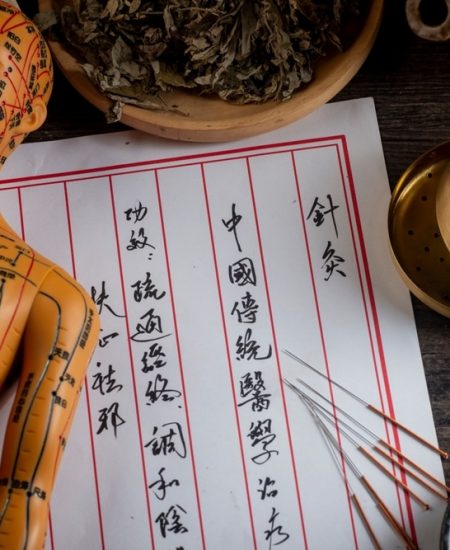 針灸
中國傳統醫學治疗
功效：疏通經絡、調和陰
扶正祛邪